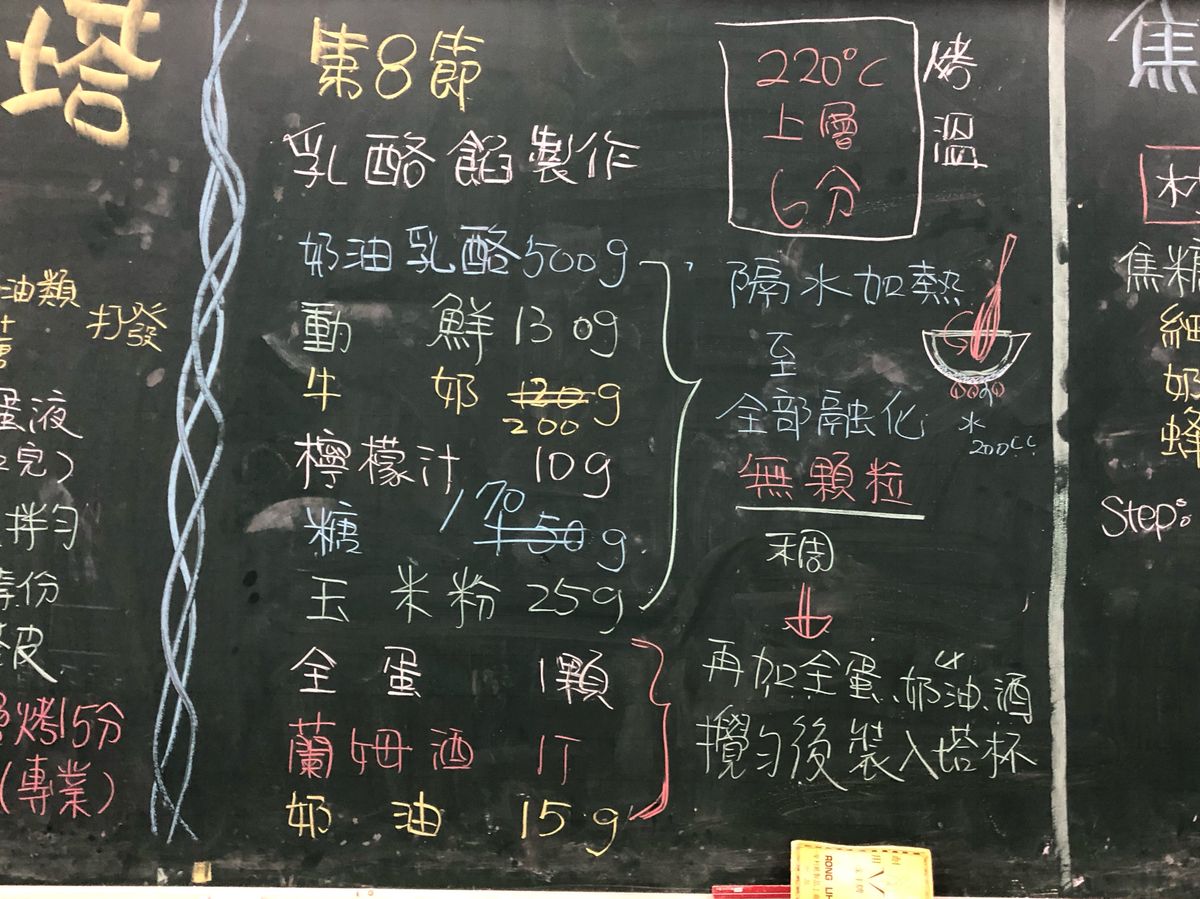 塔
油類
打發
糖
蛋液
拌勻
等份
塔皮
烤15分
(專業)
第8節
乳酪餡製作
奶油乳酪500g
動 鮮130g
牛 奶 120g
200
檸檬汁 10g
170
糖 150g
玉米粉 25g
全蛋 1顆
蘭姆酒 1T
奶油 15g
220°C
上層
6分
烤溫
隔水加熱
至
全部融化
水
200cc
無顆粒
稠
再加全蛋、奶油、酒
攪勻後裝入塔杯
焦
材
焦糖
細
奶
蜂
Step:
RONG LIH